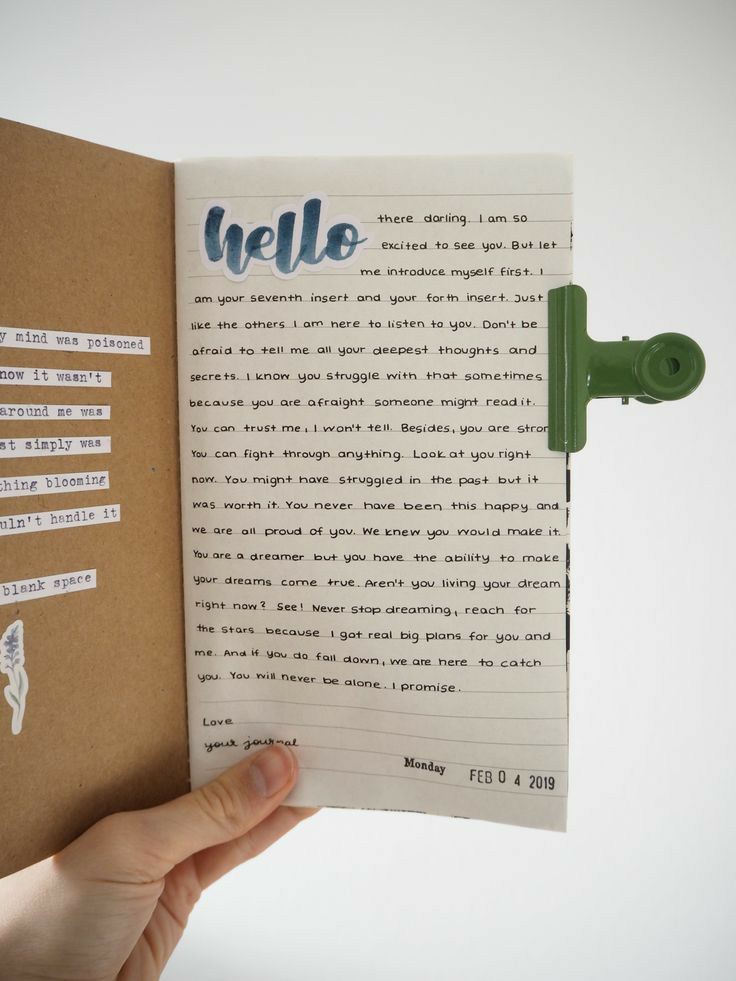 y mind was poisoned
now it wasn't
around me was
st simply was
thing blooming
uln't handle it
blank space
hello there darling. I am so
excited to see you. But let
me introduce myself first. I
am your seventh insert and your forth insert. Just
like the others I am here to listen to you. Don't be
afraid to tell me all your deepest thoughts and
secrets. I know you struggle with that sometimes
because you are afraight someone might read it.
You can trust me, I won't tell. Besides, you are stron
You can fight through anything. Look at you right
now. You might have struggled in the past but it
was worth it. You never have been this happy and
we are all proud of you. We knew you would make it.
You are a dreamer but you have the ability to make
your dreams come true. Aren't you living your dream
right now? See! Never stop dreaming, reach for
the stars because I got real big plans for you and
me. And if you do fall down, we are here to catch
you. You will never be alone. I promise.
Love
your journal
Monday FEB 04 2019